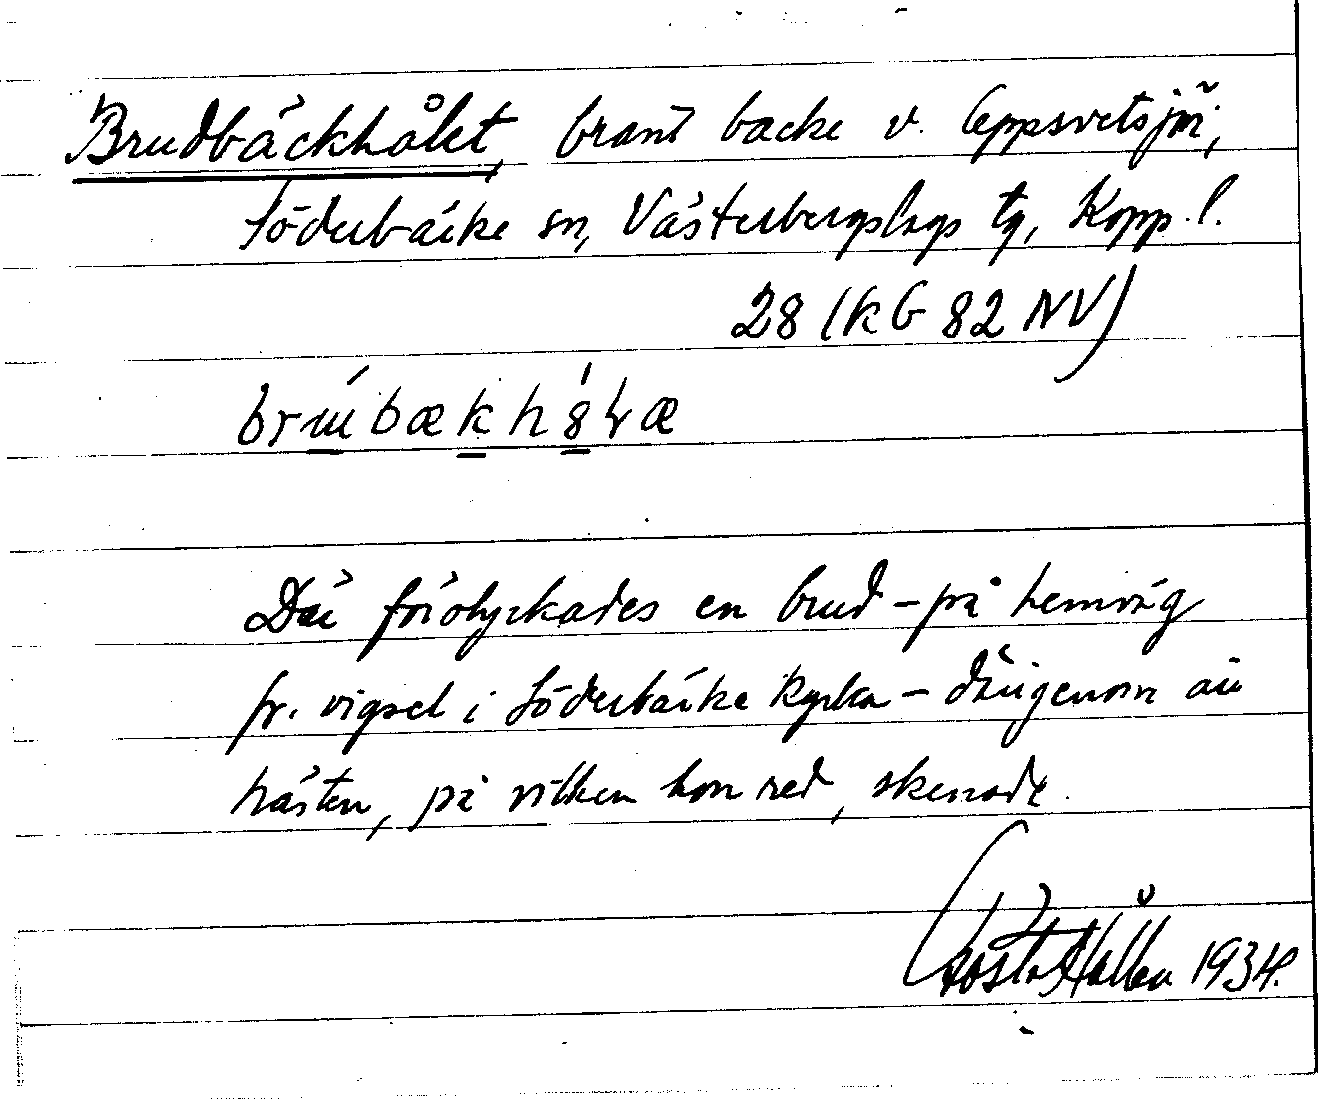 Brudbäckhålet, brant backe v. Leppsvetsjön,
Söderbärke sn, Västerbergslags tg, Kopp. l.
28 (KG 82 NV)
Där förolyckades en brud – på hemväg
fr. vigsel i Söderbärke kyrka – därigenom att
hästen, på vilken hon red, skenade.
Gösta Hallén 1934.